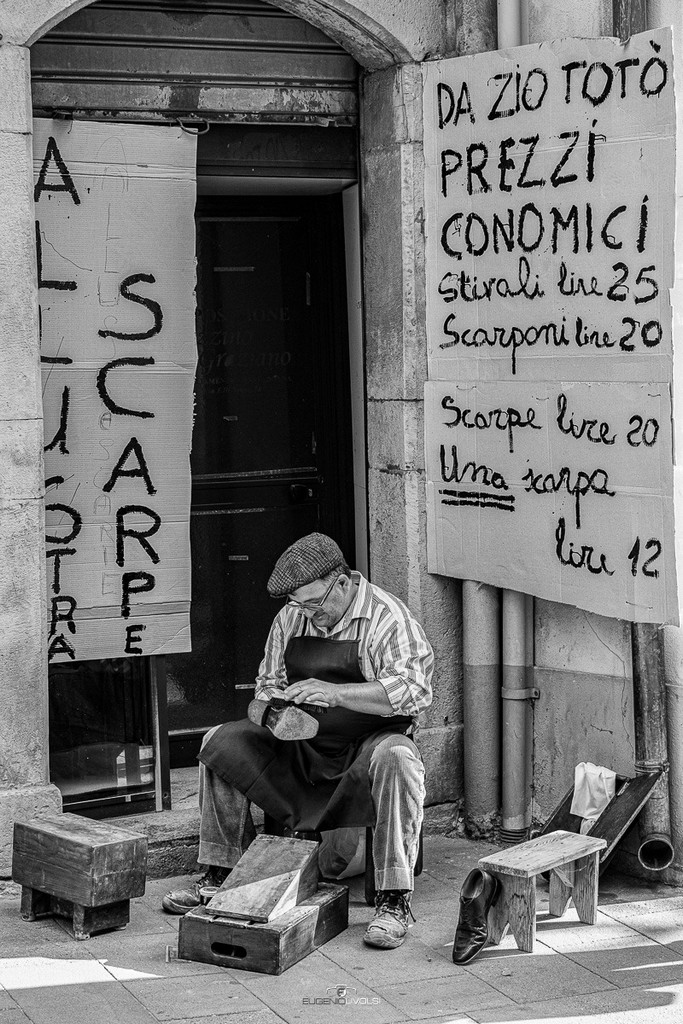 SCARPE
DA ZIO TOTÒ
PREZZI
CONOMICI
Stivali lire 25
Scarponi lire 20
Scarpe lire 20
Una scarpa
lire 12